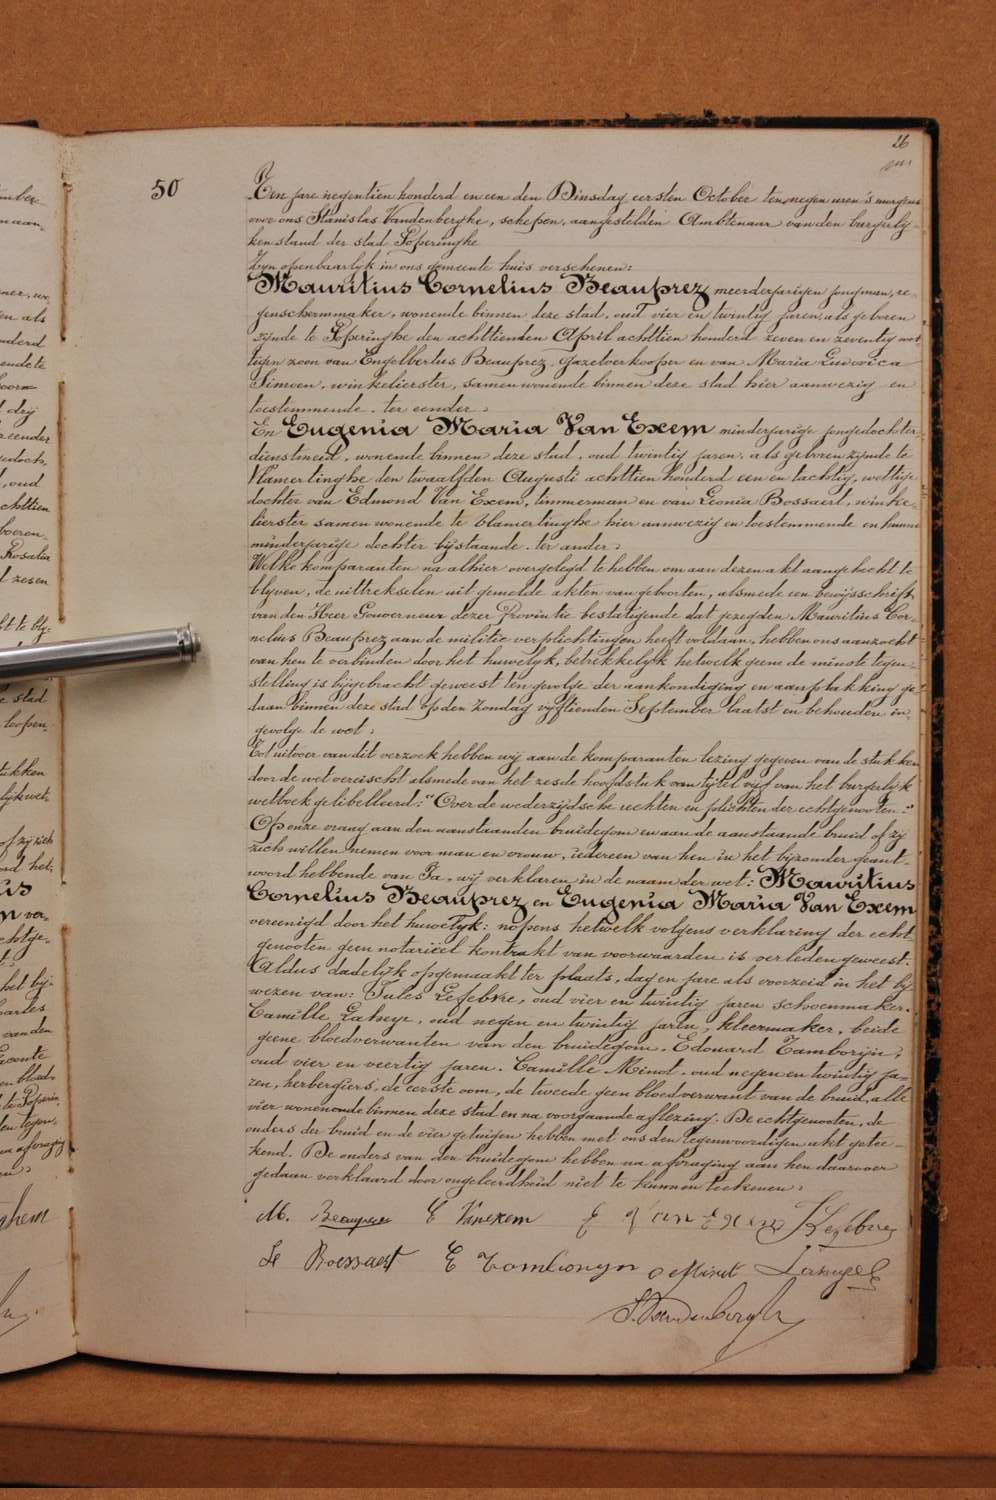 26
50
Ten jare negentien honderd en een den Dinsdag eersten October ten negen uren 's morgens
voor ons Stanislas Vandenberghe, schepen, aangestelden Ambtenaar van den burgerly-
ken stand der stad Poperinghe
Zyn openbaarlyk in ons gemeente huis verschenen:
Mauritius Cornelius Beauprez meerderjarigen jongman, re-
genschermmaker, wonende binnen deze stad, oud vier en twintig jaren, als geboren
zynde te Poperinghe den achttienden April achttien honderd zeven en zeventig wet-
tigen zoon van Engelbertus Beauprez, gazetverkooper en van Maria Ludovica
Simoen, winkelierster, samenwonende binnen deze stad hier aanwezig en
toestemmende. ter eender.
En Eugenia Maria Van Exem minderjarige jongedochter
dienstmeid, wonende binnen deze stad, oud twintig jaren, als geboren zynde te
Vlamertinghe den twaalfden Augusti achttien honderd een en tachtig, wettige
dochter van Edmond Van Exem, timmerman en van Leonia Bossaert, winke-
lierster samen wonende te Vlamertinghe hier aanwezig en toestemmende en hunne
minderjarige dochter bijstaande. ter ander.
Welke komparanten na alhier overgelegd te hebben om aan dezen akt aangehecht te
blyven, de uittrekselen uit gemelde akten van geboorten, alsmede een bewijsschrift
van den Heer Gouverneur dezer Provintie bestatigende dat gezegden Mauritius Cor-
nelius Beauprez aan de militie verplichtingen heeft voldaan, hebben ons aanzocht
van hen te verbinden door het huwelyk, betrekkelyk hetwelk geene de minste tegen-
stelling is bijgebracht geweest ten gevolge der aankondiging en aanplakking ge-
daan binnen deze stad op den Zondag vyftienden September laatst en behouden in
gevolge de wet.
Tot uitvoer van dit verzoek hebben wij aan de komparanten lezing gegeven van de stukken
door de wet vereischt alsmede van het zesde hoofdstuk van tijtel vijf van het burgerlyk
wetboek gelibelleerd: "Over de wederzijdsche rechten en plichten der echtgenooten."
Op onze vraag aan den aanstaanden bruidegom en aan de aanstaande bruid of zij
zich willen nemen voor man en vrouw, iedereen van hen in het bijzonder geant-
woord hebbende van Ja, wij verklaren in de naam der wet: Mauritius
Cornelius Beauprez en Eugenia Maria Van Exem
vereenigd door het huwelyk: nopens hetwelk volgens verklaring der echt
genooten geen notariëel kontrakt van voorwaarden is verleden geweest.
Aldus dadelijk opgemaakt ter plaats, dag en jare als voorzeid in het bij
wezen van: Jules Lefebre, oud vier en twintig jaren schoenmaker.
Camille oud negen en twintig jaren, kleermaker, beide
geene bloedverwanten van den bruidegom. Edouard Tamboryn,
oud vier en veertig jaren. Camille Minot, oud negen en twintig ja-
ren, herbergiers, de eerste oom, de tweede geen bloedverwant van de bruid, alle
vier wonende binnen deze stad en na voorgaande aflezing. De echtgenooten, de
ouders der bruid en de vier getuigen hebben met ons den tegenwoordigen akt getee-
kend. De ouders van den bruidegom hebben na afvraging aan hen daarover
gedaan verklaard door ongeleerdheid niet te kunnen teekenen.
M. Beauprez E Vanexem J Lefebre
Le Bossaert E Tamboryn c Minot
S. Vandenberghe